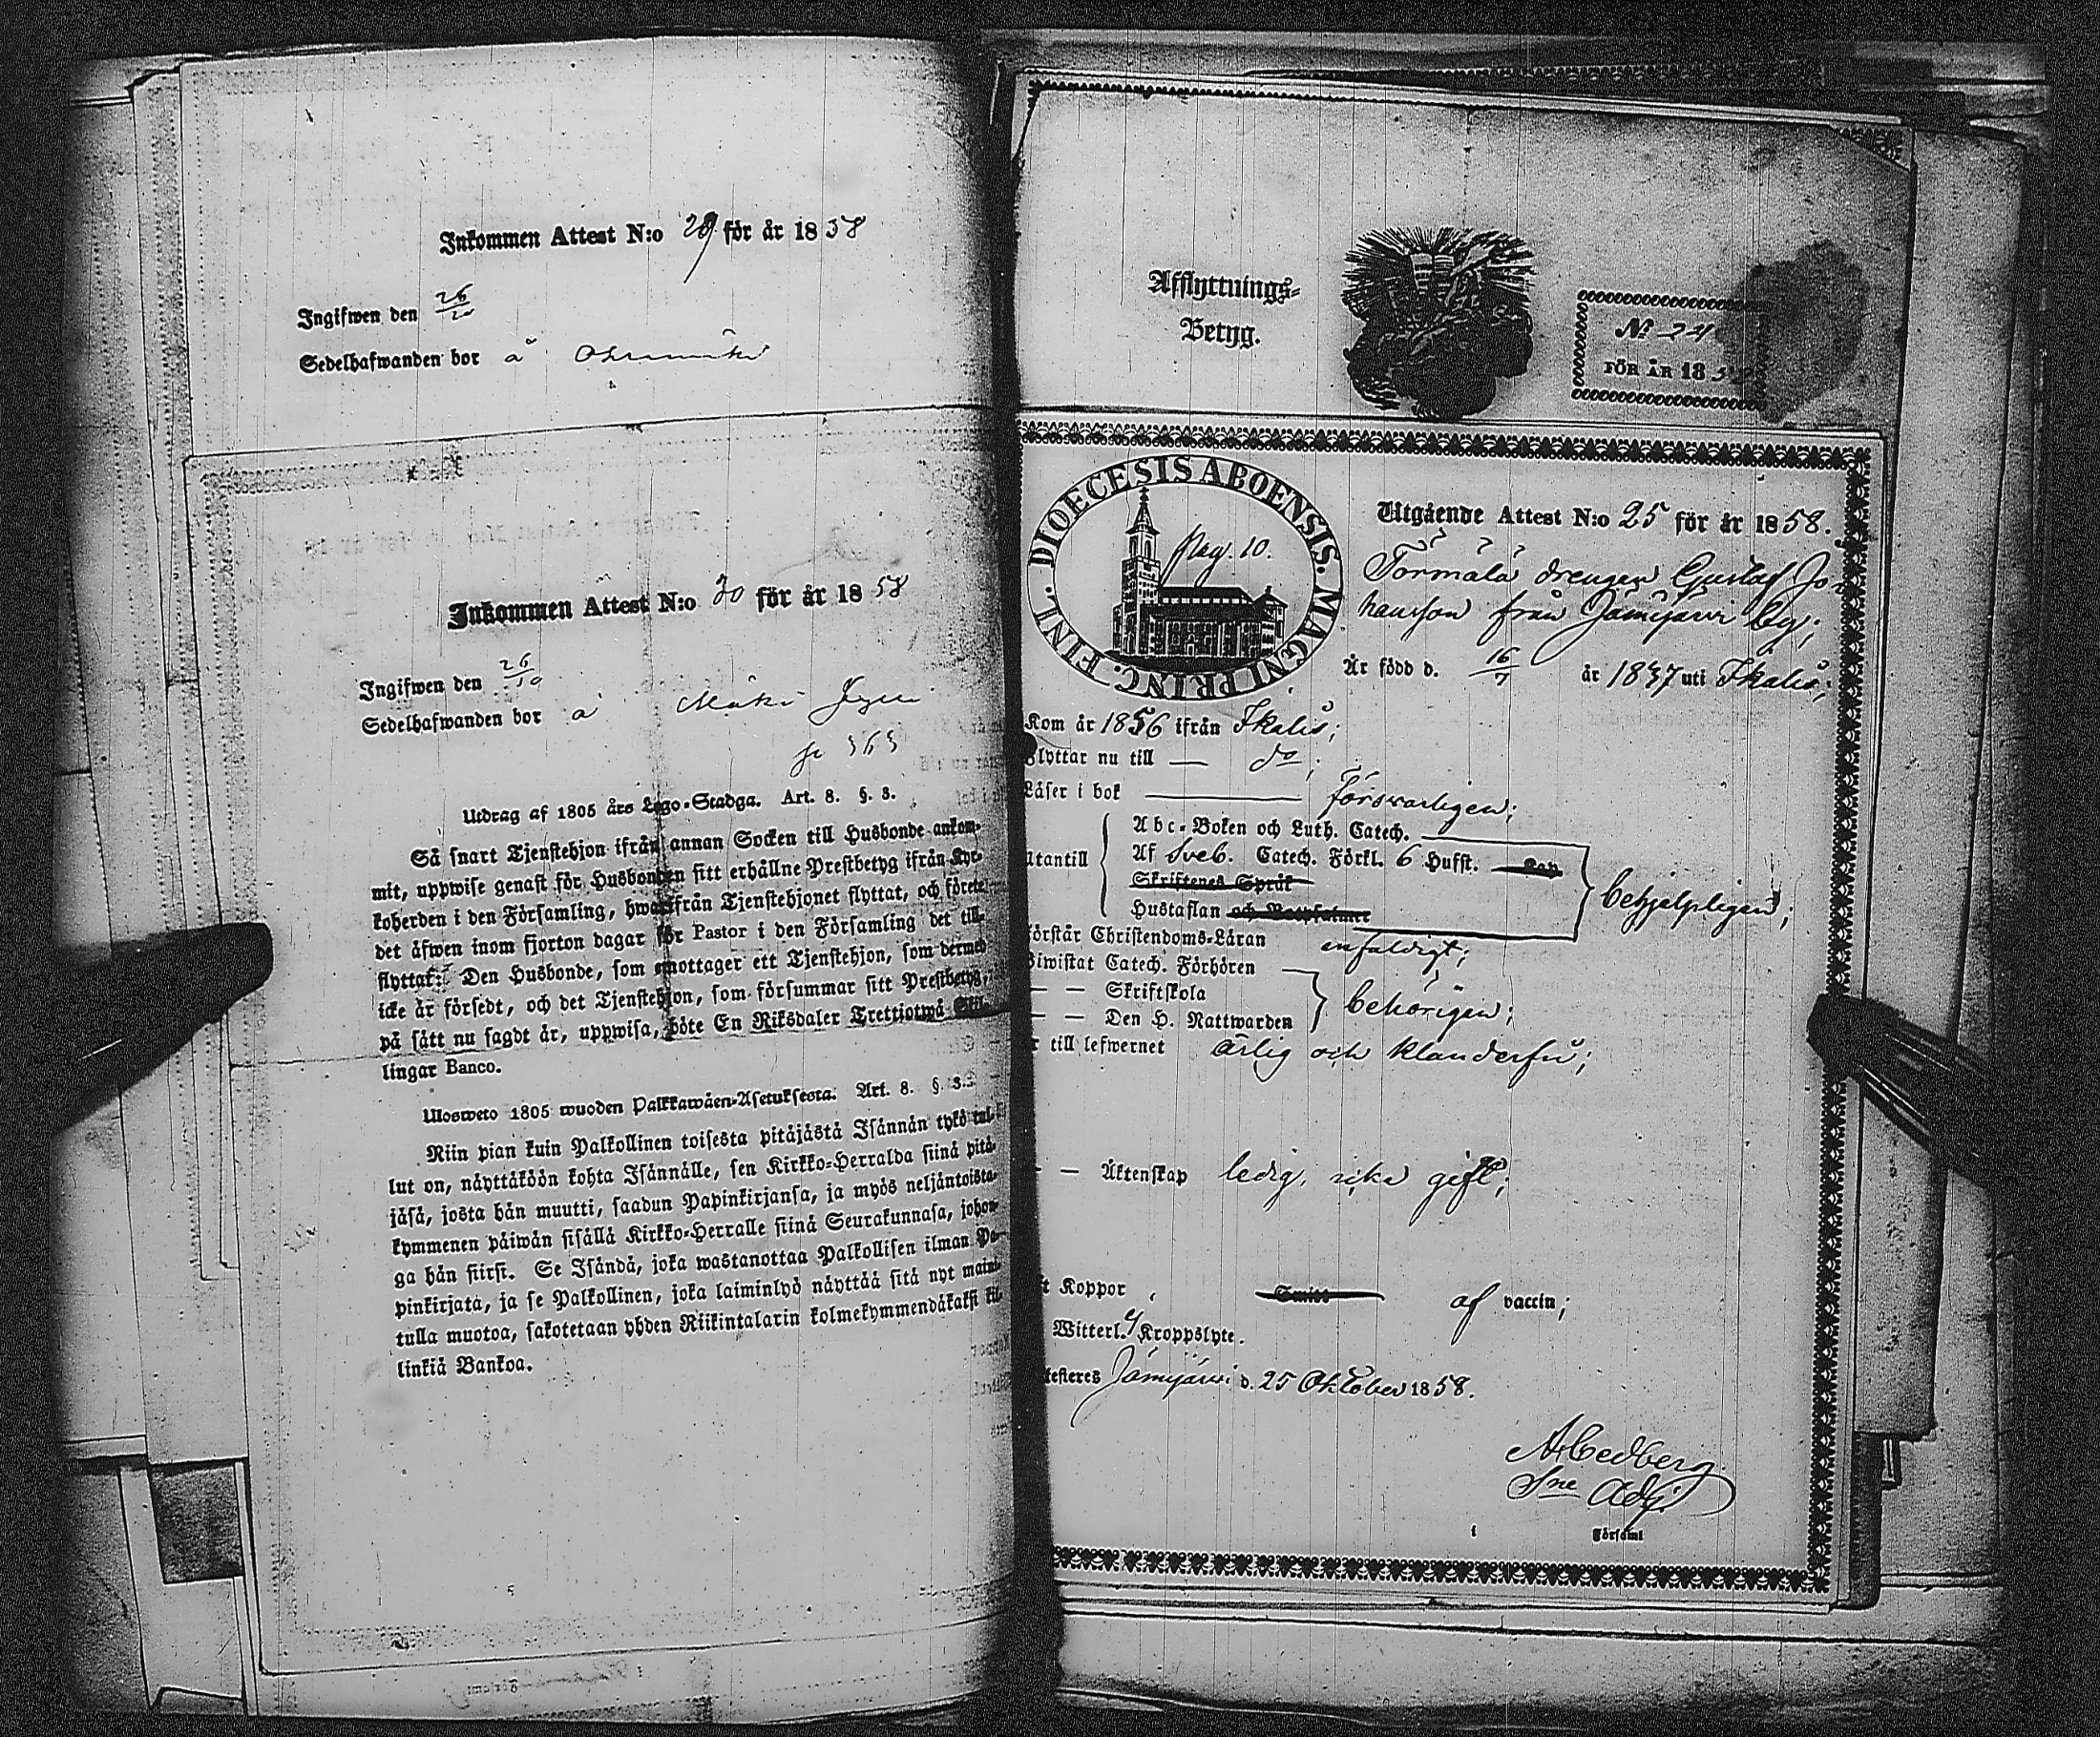 Inkommen Attest N:o 29 för år 1858
Ingifwen den 26/10
Sedelhafwanden bor å
Inkommen Attest N:o 30 för år 1858
Ingifwen den 26/10
Sedelhafwanden bor å Mäki
p 363
Utdrag af 1805 års Lego-Stadga. Art. 8. §. 3.
Så snart Tjenstehjon ifrån annan Socken till Husbonde ankom-
mit, uppwise genast för Husbonden sitt erhållne Prestbetyg ifrån Kyr-
koherden i den Församling, hwarifrån Tjenstehjonet flyttat, och förete
det åfwen inom fjorton dagar för Pastor i den Församling det till-
flyttat: Den Husbonde, som emottager ett Tjenstehjon, som dermed
icke är försedt, och det Tjenstehjon, som försummar sitt Prestbetyg,
på sätt nu sagdt är, uppwisa, böte En Riksdaler Trettiotwå Skil-
lingar Banco.
Ulosweto 1805 wuoden Palkkawäen-Asetuksesta. Art. 8. §. 3.
Niin pian kuin Palkollinen toisesta pitäjästä Isännän tykö tul-
lut on, näyttäköön kohta Isännälle, sen Kirkko-Herralda siinä pitä-
jäsä, josta hän muutti, saadun Papinkirjansa, ja myös neljäntoista-
kymmenen päiwän sisällä Kirkko-Herralle siinä Seurakunnasa, johon-
ga hän siirsi. Se Isändä, joka wastanottaa Palkollisen ilman Pa-
pinkirjata, ja se Palkollinen, joka laiminlyö näyttää sitä nyt maini-
tulla muotoa, sakotetaan yhden Riikintalarin kolmekymmendäkaksi kil-
linkiä Bankoa.
Afflyttnings-
Betyg.
No 24
FÖR ÅR 1858
DIOECESIS ABOENSIS. MAGNI PRINC. FINL.
pag. 10.
Utgående Attest N:o 25 för år 1858.
Törmälä drengen Gustaf Jo-
hansson från Jämijärvi by;
Är född d. 16/7 år 1837 uti Ikalis;
Kom år 1856 ifrån Ikalis;
Flyttar nu till — do;
Läser i bok försvarligen;
Abc-Boken och Luth. Catech.
utantill Af Sveb. Catech. Förkl. 6 Hufst. Kap
Skriftenes Språk
Hustaflan och Botpsalmer
behjelpligen;
förstår Christendoms-Läran enfaldigt;
Biwistat Catech. Förhören
— — Skriftskola
— — Den H. Nattwarden
behörigen;
r till lefwernet ärlig och klanderfri;
— — Äktenskap ledig, icke gift;
t Koppor, Smitt af vaccin;
Witterl. Kroppslyte.
testeres Jämijärvi d. 25 Oktober 1858.
A. Cedberg
Sne Adj.
i Församl